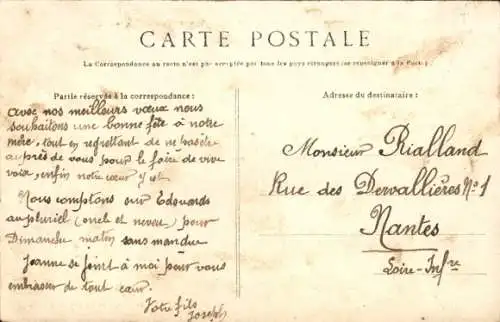 CARTE POSTALE
La Correspondance au recto n'est pas acceptée par tous les pays étrangers (se renseigner à la Poste).
Partie réservée à la correspondance :
avec nos meilleurs vœux nous
souhaitons une bonne fête à notre
mère, tout en regrettant de ne pas être
auprès de vous pour le faire de vive
voix, enfin notre cœur y est
Nous comptons sur Edouards
au pluriel (oncl et neveu) pour
Dimanche matin sans manque
Jeanne se joint à moi pour vous
embrasser de tout cœur.
Votre fils
Joseph
Adresse du destinataire :
Monsieur Rialland
Rue des Dervallières No 1
Nantes
Loire-Infre